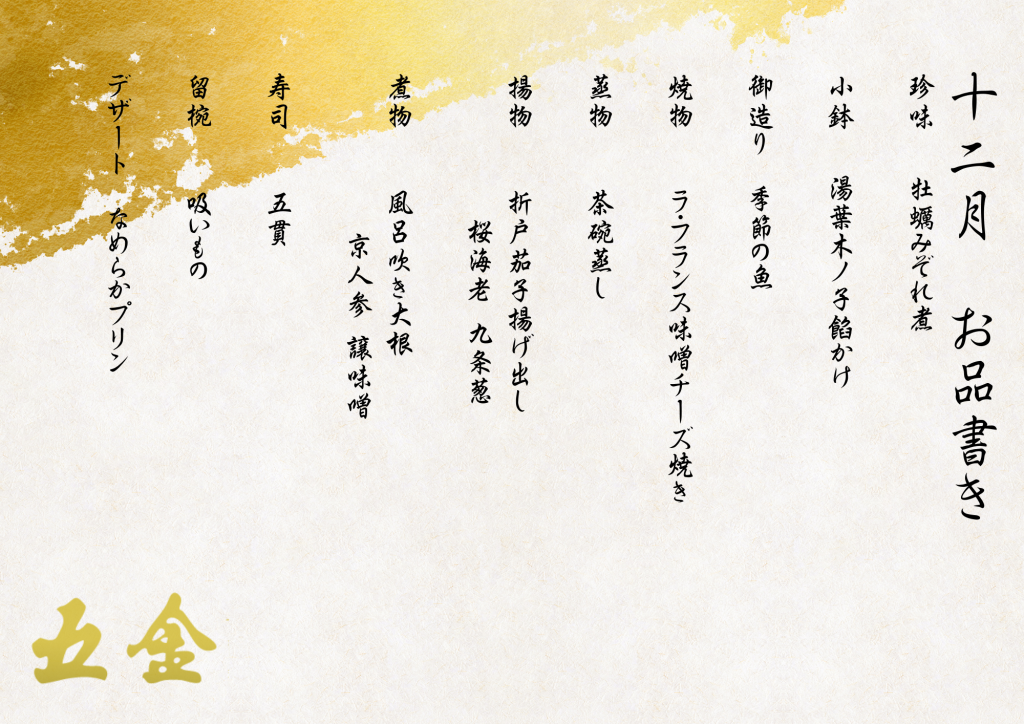 十二月 お品書き
珍味 牡蠣みぞれ煮
小鉢 湯葉木ノ子餡かけ
御造り 季節の魚
焼物 ラ・フランス味噌チーズ焼き
蒸物 茶碗蒸し
揚物 折戸茄子揚げ出し
桜海老 九条葱
煮物 風呂吹き大根
京人参 譲味噌
寿司 五貫
留椀 吸いもの
デザート なめらかプリン
金五